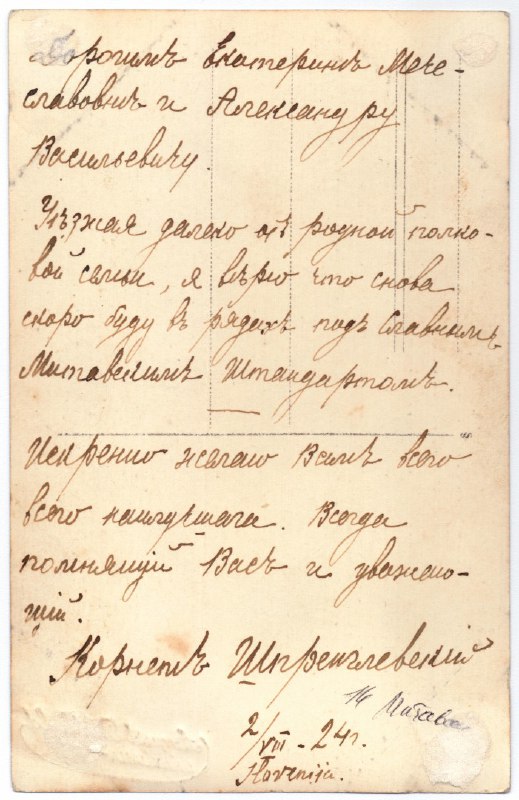 Дорогимъ Екатеринѣ Мече-
славовнѣ и Александру
Васильевичу.
Уѣзжая далеко отъ родной полко-
вой семьи, я вѣрю что снова
скоро буду въ рядахъ подъ Славнымъ
Митавскимъ Штандартомъ.
Искренно желаю Вамъ всего
всего наилучшаго. Всегда
помнящій Васъ и уважаю-
щій.
Корнетъ
14 Митав
2/VIII - 24 г.
Slovenija.